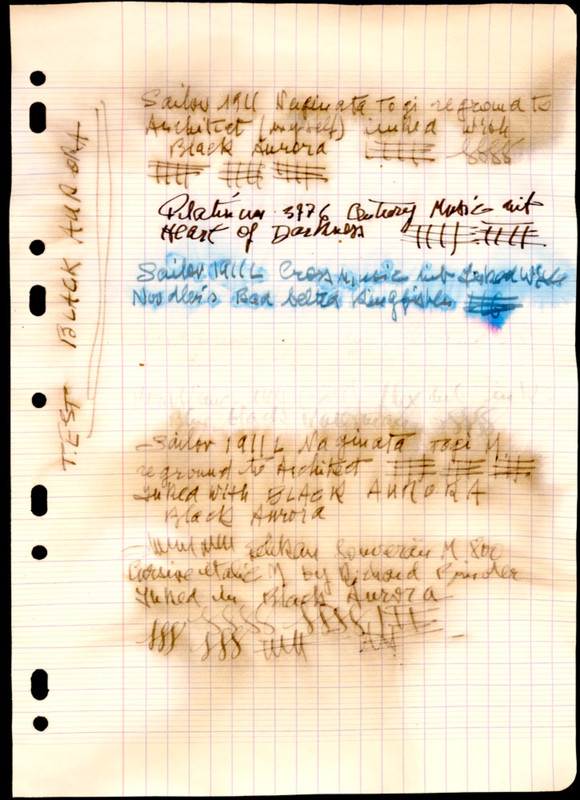 TEST BLACK AURORA
Sailor 1911 Naginata Togi reground to
Architect (myself) inked with
Black Aurora
Platinum 3776 Century Music nib
Heart of Darkness
Sailor 1911L Cross Music nib Inked With
Noodler's Bad belted Kingfisher
Sailor 1911L Naginata Togi M
reground to Architect
Inked with BLACK AURORA
Black Aurora
Souverän M 800
Cursive italic M by Richard Binder
Inked in Black Aurora